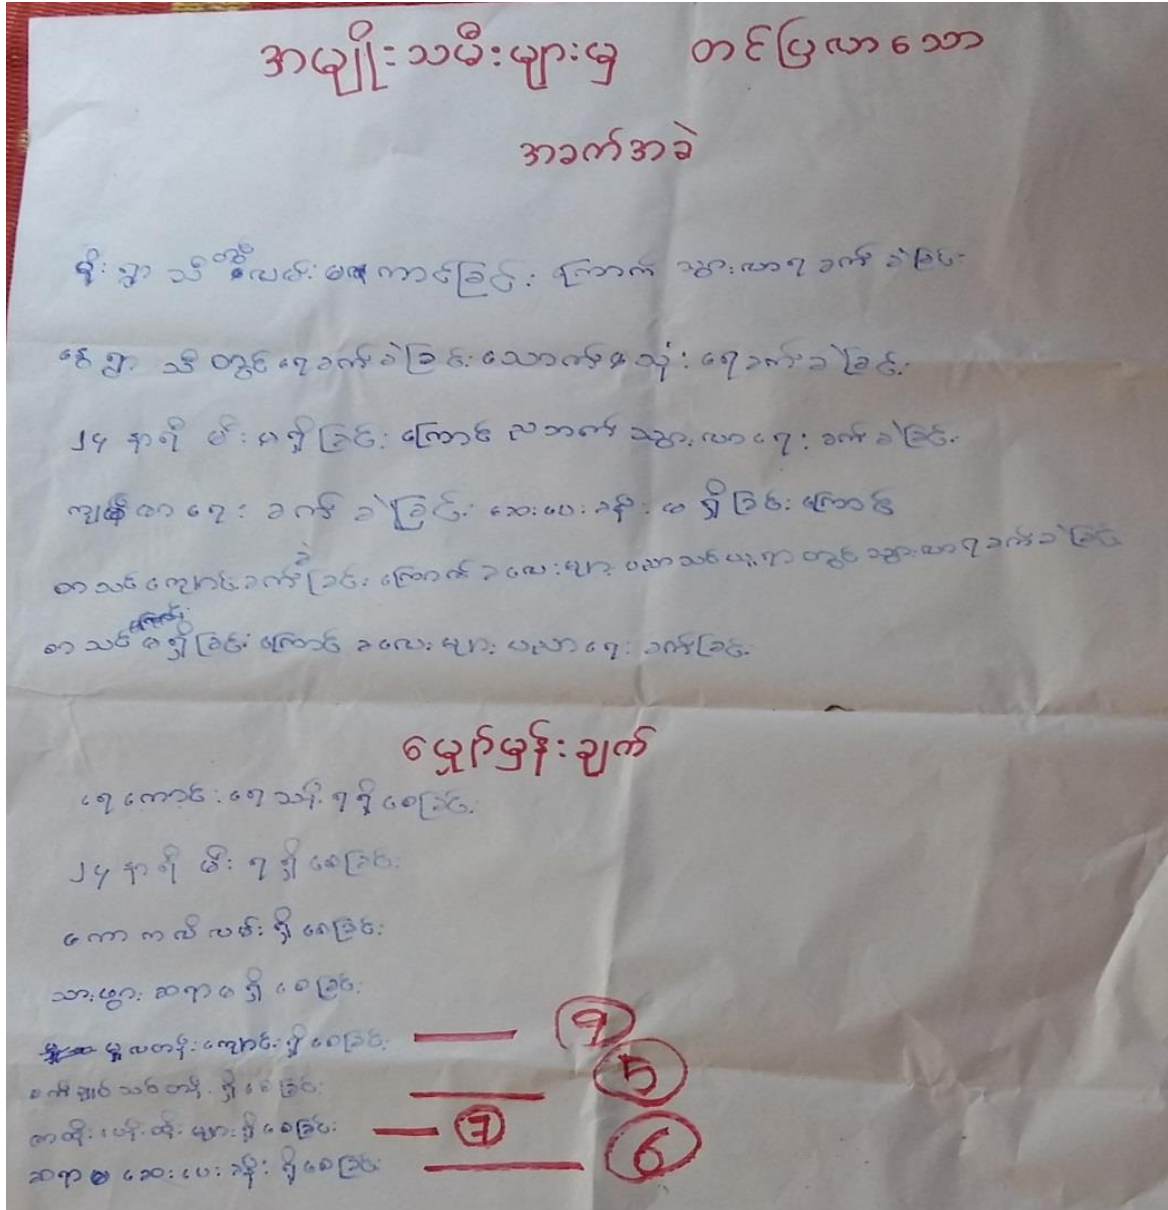 အမျိုးသမီးများမှ တင်ပြလာသော
အခက်အခဲ
ရွာသို့ လမ်းမကောင်းခြင်းကြောက် သွားလာရခက်ခဲခြင်း
နွေရွာသီတွင် ရေခက်ခဲခြင်း သောက်သုံးရေခက်ခဲခြင်း
၂၄ နာရီ မီးမရှိခြင်းကြောင် ညဘက် သွားလာရေး ခက်ခဲခြင်း
ကျန်မာရေး ခက်ခဲခြင်း ဆေးပေးခန်း မရှိခြင်းကြောင်
စာသင်ကျောင်းခက်ခဲခြင်းကြောက် ခလေးများ ပညာသင်ယူရာတွင် သွားလာရခက်ခဲခြင်း
စာသင် မရှိခြင်းကြောင် ခလေးများ ပညာရေး ခက်ခြင်း
မျှော်မှန်းချက်
ရေကောင်းရေသန့်ရရှိစေခြင်း
၂၄ နာရီ မီးရရှိစေခြင်း
ကောကလိလမ်းရှိစေခြင်း
သားဖွားဆရာမရှိစေခြင်း
မူလတန်းကျောင်းရှိစေခြင်း — ၅
စက်ချုပ်သင်တန်းရှိစေခြင်း — 5
ဓာတ်တိုးများရှိစေခြင်း — 7
ဆရာမ ဆေးပေးခန်းရှိစေခြင်း — 6